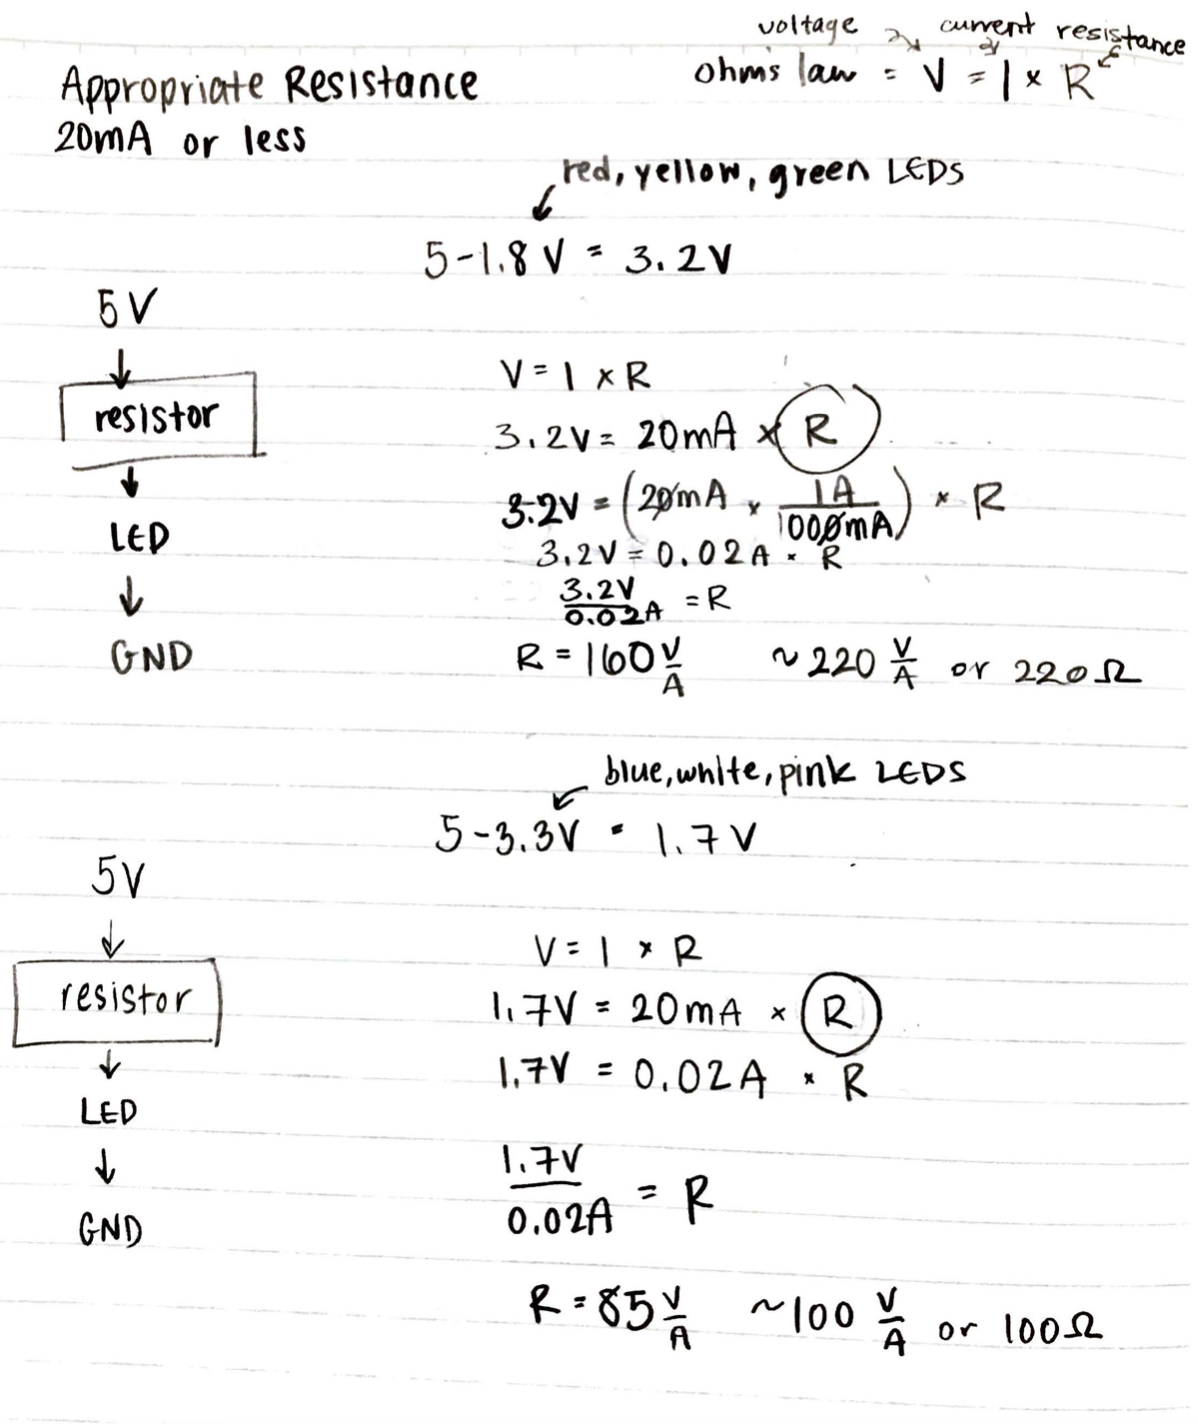 voltage current resistance
ohms law = V = I × R
Appropriate Resistance
20mA or less
red, yellow, green LEDs
5-1.8V = 3.2V
5V
resistor
LED
GND
V = I × R
3.2V = 20mA × R
3.2V = (20mA × 1A/1000mA) × R
3.2V = 0.02A × R
3.2V/0.02A = R
R = 160 V/A ~220 V/A or 220Ω
blue, white, pink LEDS
5-3.3V = 1.7V
5V
resistor
LED
GND
V = I × R
1.7V = 20mA × R
1.7V = 0.02A × R
1.7V/0.02A = R
R = 85 V/A ~100 V/A or 100Ω